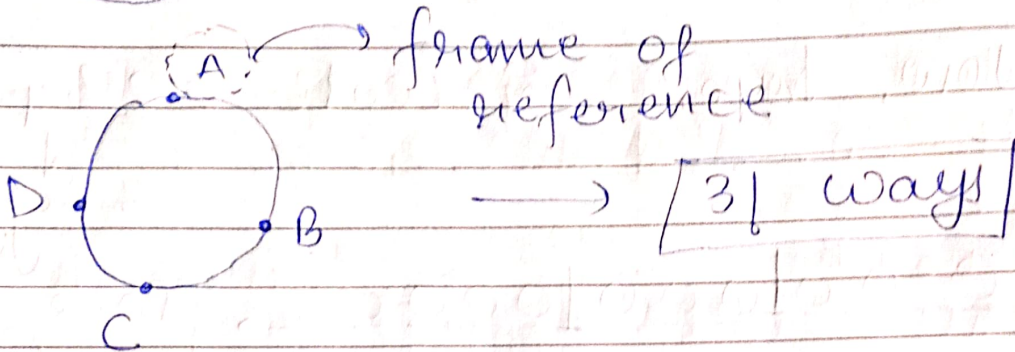 A → frame of
reference
D B → 3! ways
C